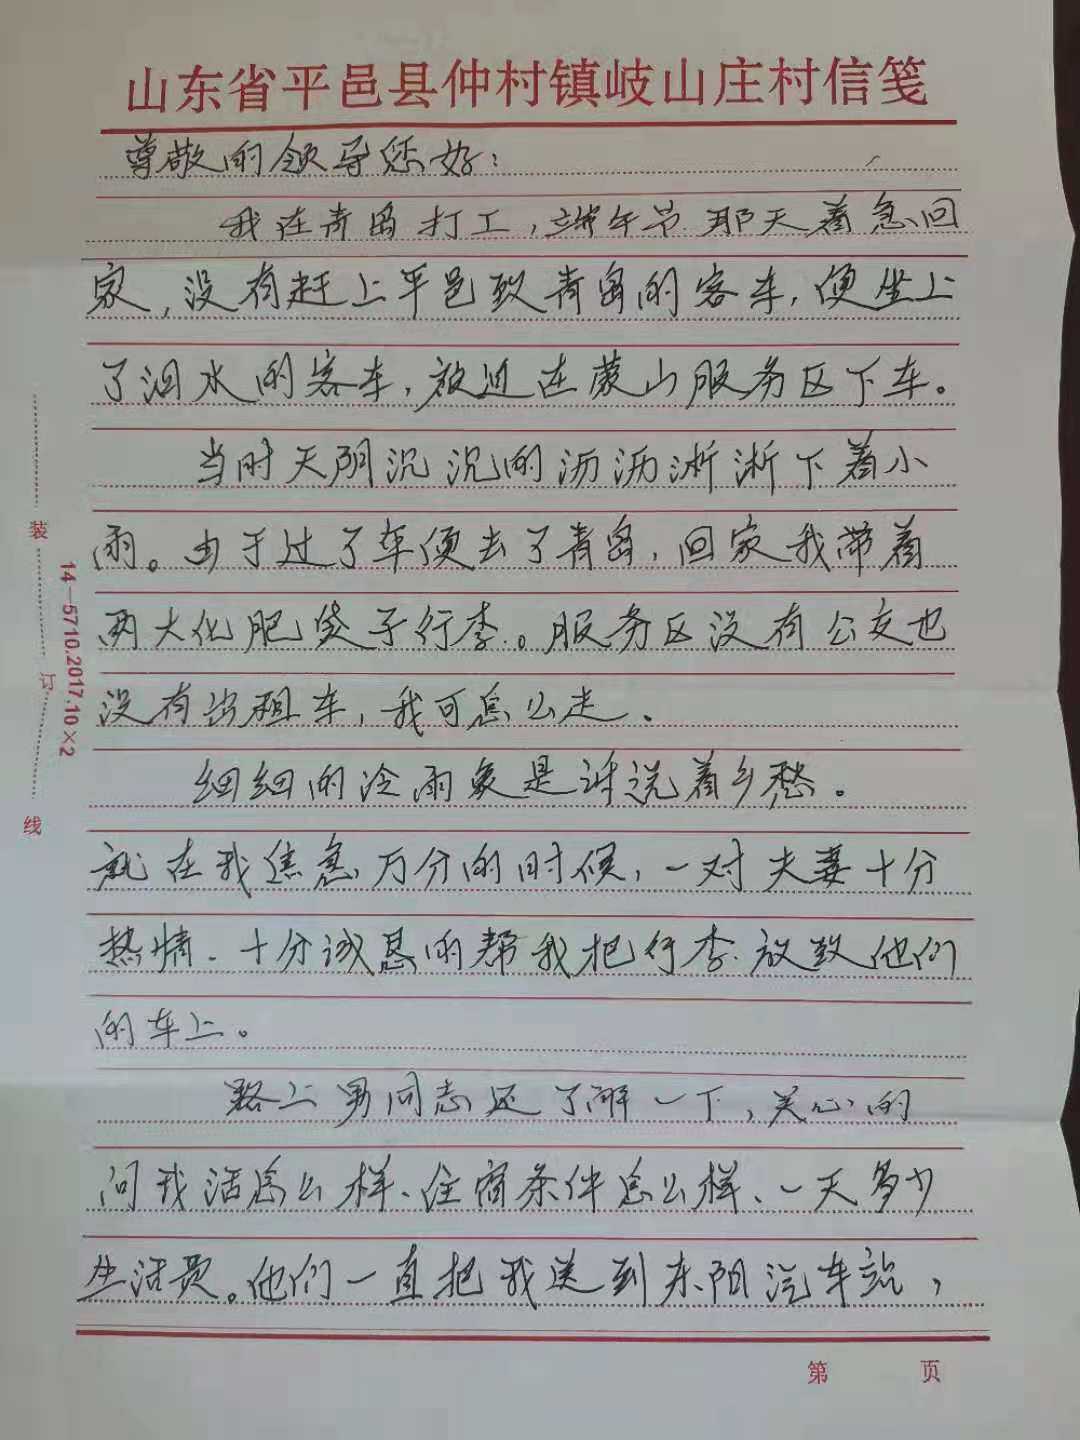 山东省平邑县仲村镇岐山庄村信笺
尊敬的领导您好：
我在青岛打工，端午节那天着急回
家，没有赶上平邑致青岛的客车，便坐上
了泗水的客车，被迫在蒙山服务区下车。
当时天阴沉沉的沥沥淅淅下着小
雨。由于过了车便去了青岛，回家我带着
两大化肥袋子行李。服务区没有公交也
没有出租车，我可怎么走。
细细的冷雨象是诉说着乡愁。
就在我焦急万分的时候，一对夫妻十分
热情、十分诚恳的帮我把行李放致他们
的车上。
路上男同志还了解一下，关心的
问我活怎么样、住宿条件怎么样、一天多少
生活费。他们一直把我送到东阳汽车站，
装
订
线
14—5710.2017.10×2
第 页